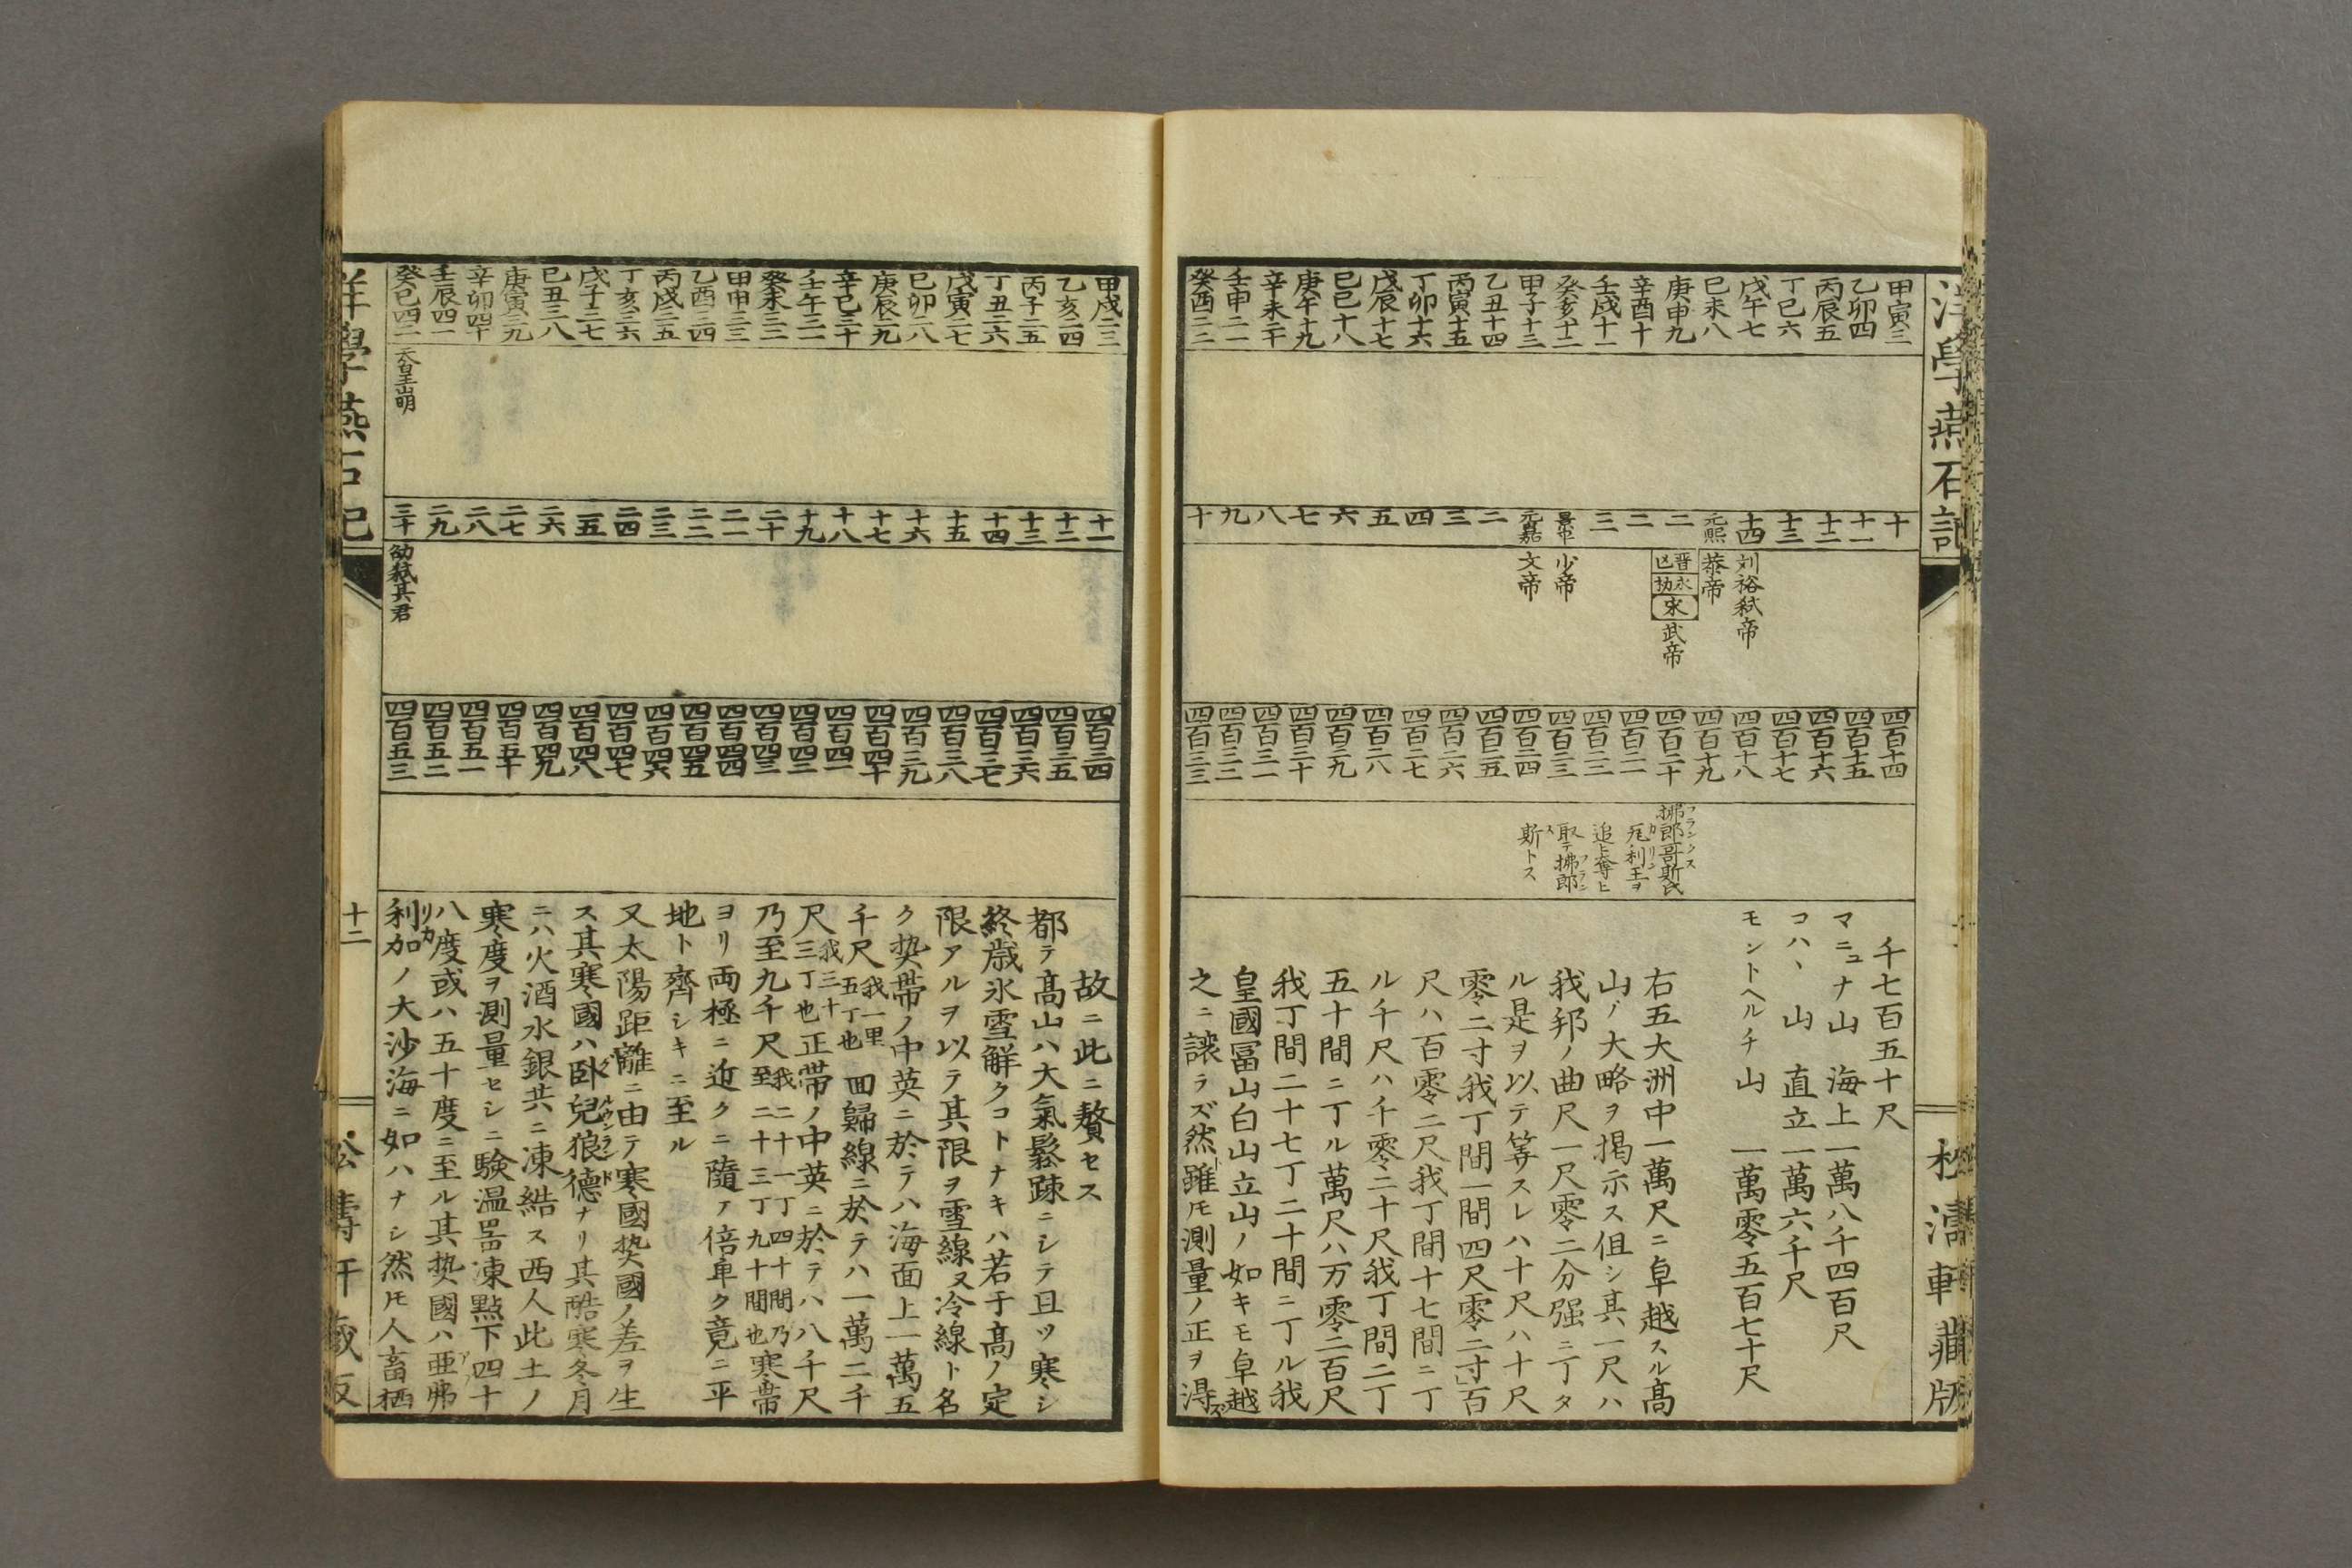 洋學燕石記
松濤軒藏版
甲寅三
乙卯四
丙辰五
丁巳六
戊午七
巳未八
庚申九
辛酉十
壬戌十一
癸亥十二
甲子十三
乙丑十四
丙寅十五
丁卯十六
戊辰十七
巳巳十八
庚午十九
辛未二十
壬申二一
癸酉二二
十
十一
十二
十三
十四
元熙
二
二
三
景平
元嘉
二
三
四
五
六
七
八
九
十
刘裕弑帝
恭帝
晋亡
永初
宋
武帝
少帝
文帝
四百十四
四百十五
四百十六
四百十七
四百十八
四百十九
四百二十
四百二一
四百二二
四百二三
四百二四
四百二五
四百二六
四百二七
四百二八
四百二九
四百三十
四百三一
四百三二
四百三三
拂郎哥斯氏
厄利王ヲ
追ヒ奪ヒ
取テ拂郎
斯トス
千七百五十尺
マニュナ山 海上一萬八千四百尺
コハヽ山 直立一萬六千尺
モントヘルチ山 一萬零五百七十尺
右五大洲中一萬尺ニ卓越スル髙
山ノ大略ヲ掲示ス但シ其一尺ハ
我邦ノ曲尺一尺零二分强ニ丁タ
ル是ヲ以テ筭スレハ十尺ハ十尺
零二寸我丁間一間四尺零二寸百
尺ハ百零二尺我丁間十七間ニ丁
ル千尺ハ千零二十尺我丁間二丁
五十間ニ丁ル萬尺ハ万零二百尺
我丁間二十七丁二十間ニ丁ル我
皇國冨山白山立山ノ如キモ卓越
之ニ讓ラズ然雖モ測量ノ正ヲ淂ズ
甲戌二三
乙亥二四
丙子二五
丁丑二六
戊寅二七
巳卯二八
庚辰二九
辛巳三十
壬午三一
癸未三二
甲申三三
乙酉三四
丙戌三五
丁亥三六
戊子三七
巳丑三八
庚寅三九
辛卯四十
壬辰四一
癸巳四二
十一
十二
十三
十四
十五
十六
十七
十八
十九
二十
二一
二二
二三
二四
二五
二六
二七
二八
二九
三十
劭弑其君
四百三四
四百三五
四百三六
四百三七
四百三八
四百三九
四百四十
四百四一
四百四二
四百四三
四百四四
四百四五
四百四六
四百四七
四百四八
四百四九
四百五十
四百五一
四百五二
四百五三
故ニ此ニ贅セス
都テ髙山ハ大氣鬆踈ニシテ且ツ寒シ
終歳氷雪解クコトナキハ若干髙ノ定
限アルヲ以テ其限ヲ雪線又冷線ト名
ク㷍帶ノ中英ニ於テハ海面上一萬五
千尺我一里五丁也回歸線ニ於テハ一萬二千
尺我三十三丁也正帶ノ中英ニ於テハ八千尺
乃至九千尺我二十一丁四十間乃至二十三丁九十間也寒帶
ヨリ両極ニ近クニ隨テ倍卑ク竟ニ平
地ト齊シキニ至ル
又太陽距離ニ由テ寒國㷍國ノ差ヲ生
ス其寒國ハ卧兒狼德ナリ其酷寒冬月
ニハ火酒水銀共ニ凍結ス西人此土ノ
寒度ヲ測量セシニ験温噐凍點下四十
八度或ハ五十度ニ至ル其㷍國ハ亜弗
利加ノ大沙海ニ如ハナシ然レ𪜈人畜栖
洋學燕石記
十二
松濤軒藏版